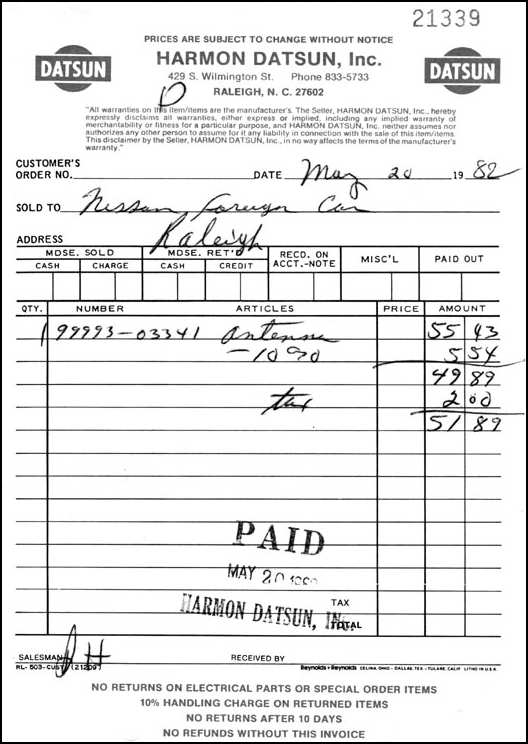 21339
PRICES ARE SUBJECT TO CHANGE WITHOUT NOTICE
DATSUN
HARMON DATSUN, Inc.
DATSUN
429 S. Wilmington St. Phone 833-5733
RALEIGH, N. C. 27602
"All warranties on this item/items are the manufacturer's. The Seller, HARMON DATSUN, Inc., hereby
expressly disclaims all warranties, either express or implied, including any implied warranty of
merchantability or fitness for a particular purpose, and HARMON DATSUN, Inc. neither assumes nor
authorizes any other person to assume for it any liability in connection with the sale of this item/items.
This disclaimer by the Seller, HARMON DATSUN, Inc., in no way affects the terms of the manufacturer's
warranty."
CUSTOMER'S
ORDER NO. DATE May 20 1982
SOLD TO Nissan Foreign Car
ADDRESS Raleigh
MDSE. SOLD MDSE. RET'D RECD. ON ACCT.-NOTE MISC'L PAID OUT
CASH CHARGE CASH CREDIT
QTY. NUMBER ARTICLES PRICE AMOUNT
1 99993-03341 Antenna 55 43
-10% 5 54
49 89
tax 2 00
51 89
PAID
MAY 20
HARMON DATSUN, INC.
TAX
TOTAL
SALESMAN RECEIVED BY
RL-503-CUST (21209) Reynolds + Reynolds CELINA, OHIO - DALLAS, TEX. - TULARE, CALIF. LITHO IN U.S.A.
NO RETURNS ON ELECTRICAL PARTS OR SPECIAL ORDER ITEMS
10% HANDLING CHARGE ON RETURNED ITEMS
NO RETURNS AFTER 10 DAYS
NO REFUNDS WITHOUT THIS INVOICE